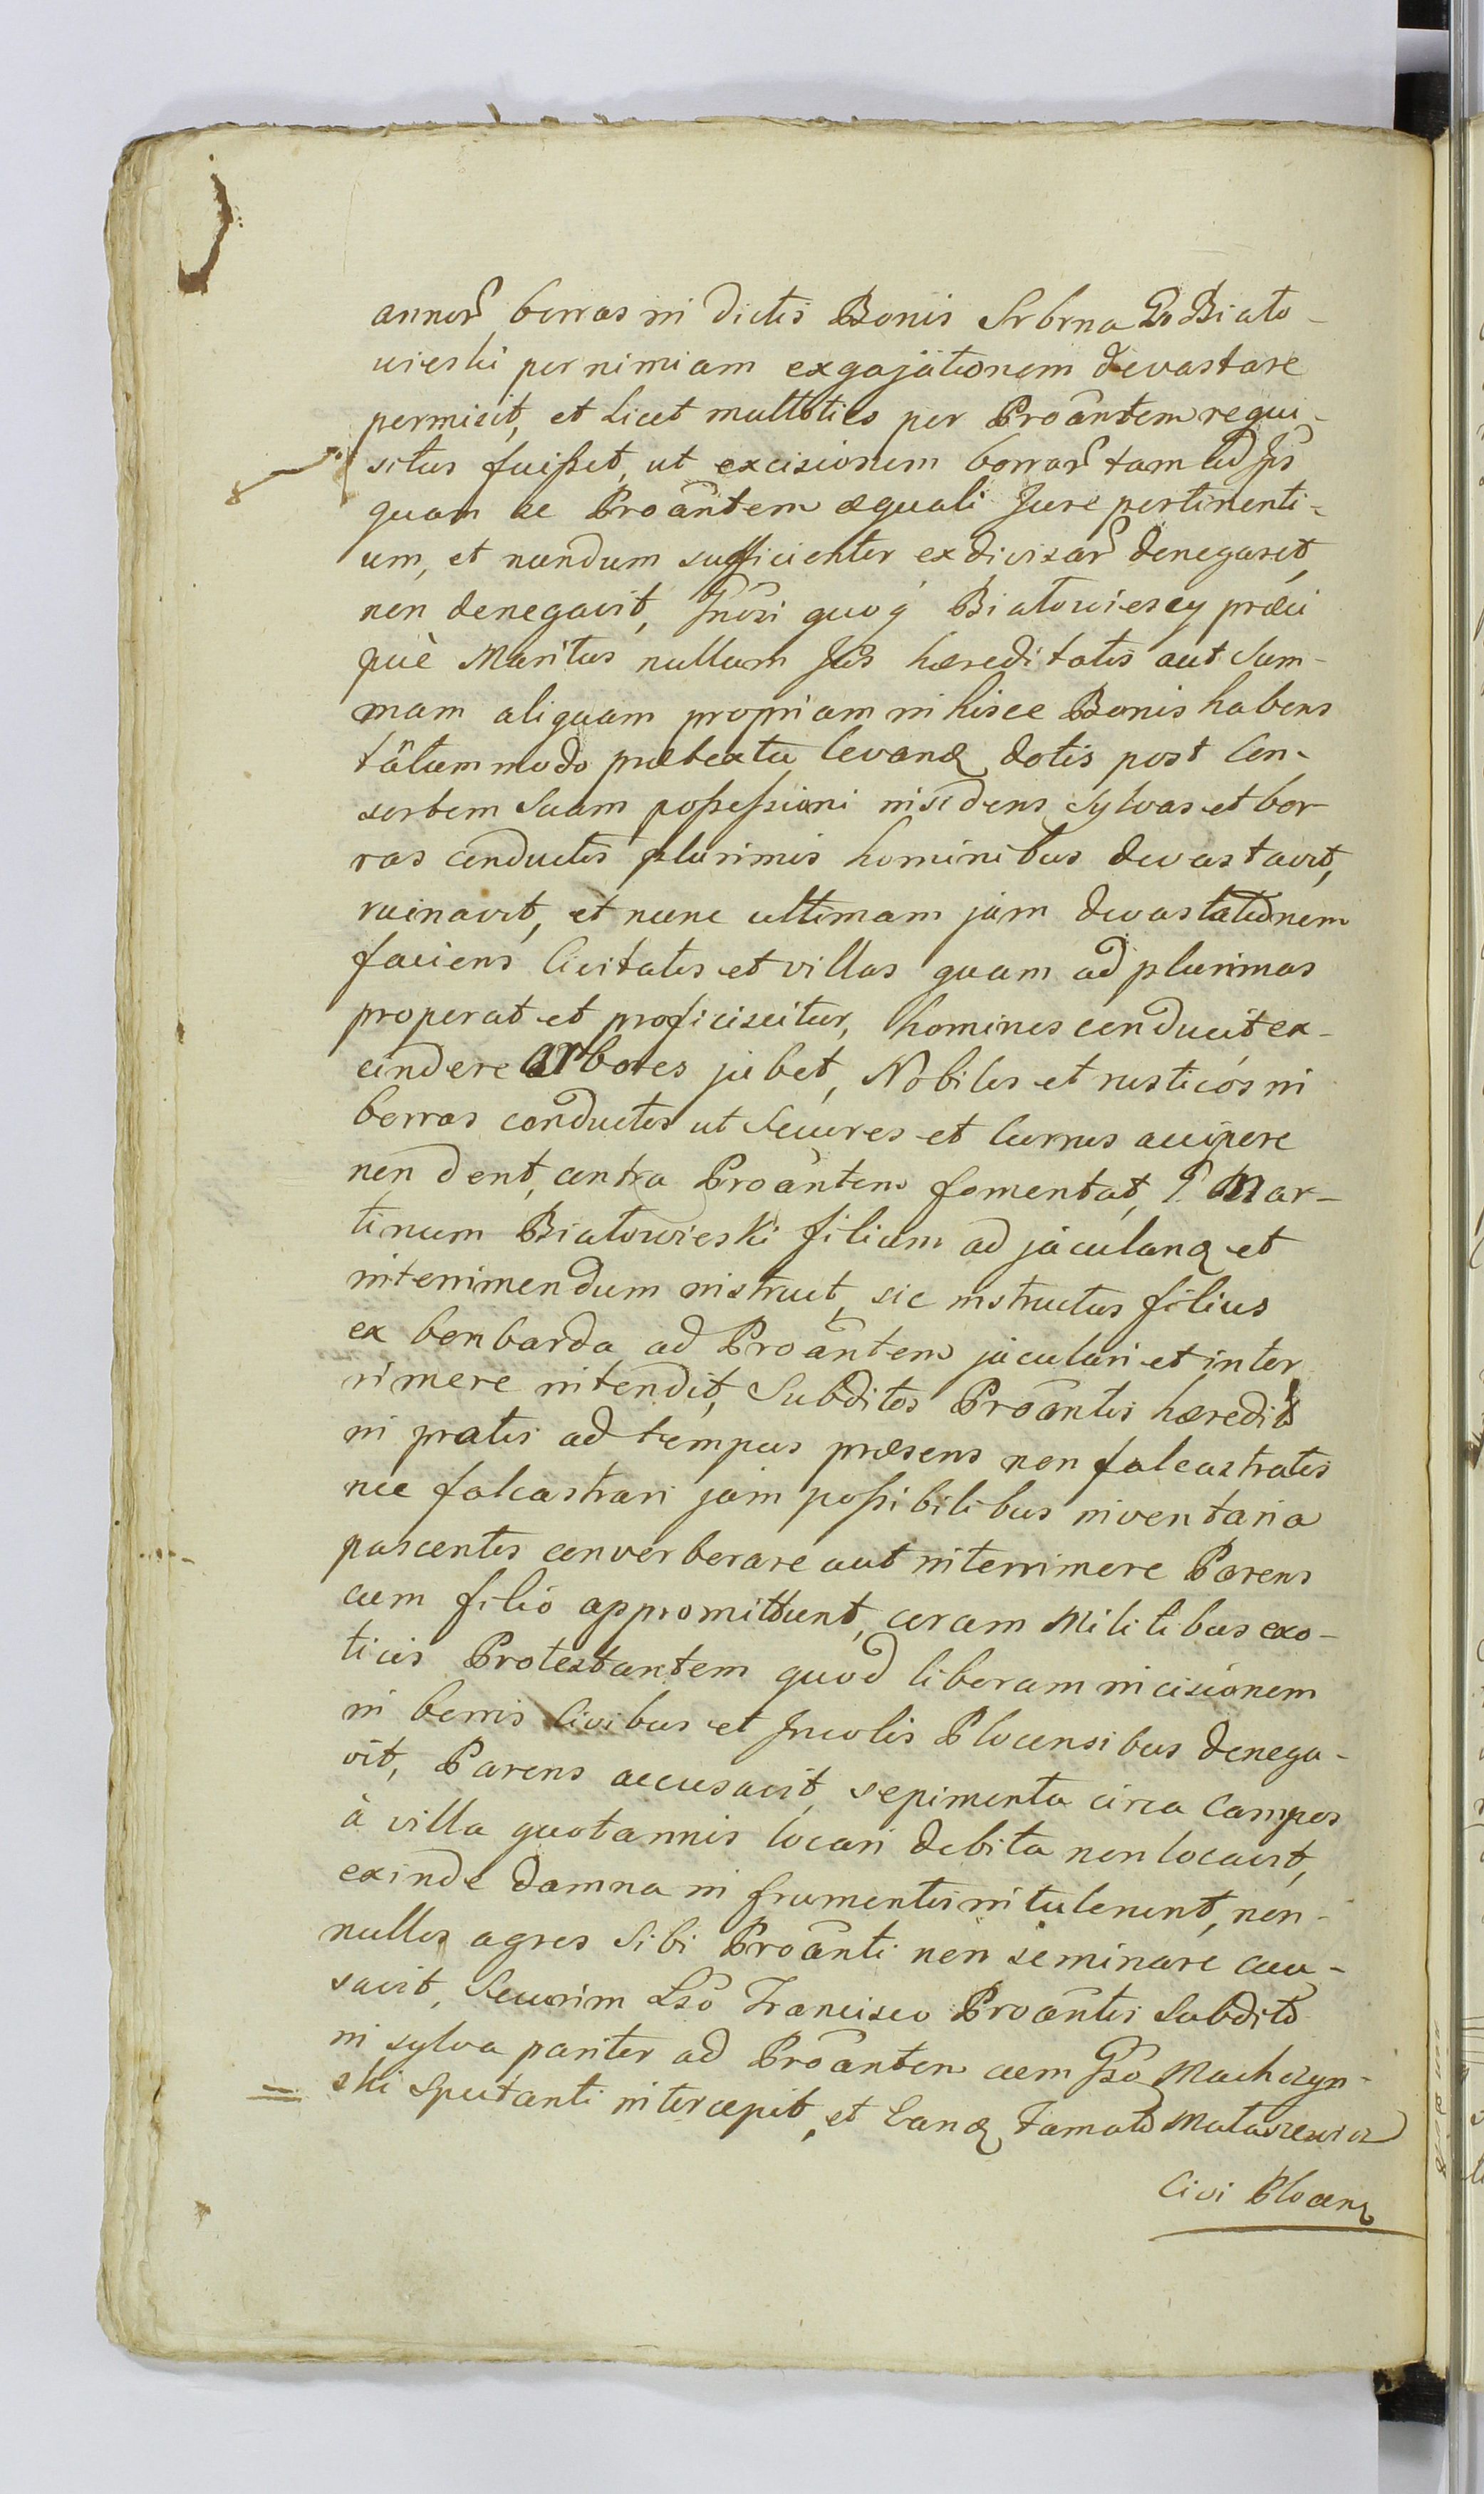 annor borras in dictis Bonis Srbrna Go Biało-
wieski per nimiam exgajationem devastare
permisit, et licet multoties per Proantem requi-
situs fuisset, ut excisionem borrar tam ad Ips
quam ac Proantem æquali Jure pertinenti-
um, et nundum sufficienter exdivisar denegaret,
non denegavit, Gnosi quoq Białowiescy præci
puè Maritus nullum Jus hæreditatis aut Sum-
mam aliquam propriam in hisce Bonis habens
tantummodo prætextu levanæ dotis post Con-
sortem Suam possessioni insidens Sylvas et bor
ras conductis plurimis hominibus devastavit,
ruinavit, et nunc ultimam jam devastationem
faciens Civitates et villas quam ad plurimas
properat et proficiscitur, homines conducit ex-
cindere arbores jubet, Nobiles et rusticos in
borras conductos ut Secures et Currus accipere
non dent, contra Proantem fomentat, G Mar-
tinum Białowieski filium ad jaculanq et
interimendum instruit, sic instructus filius
ex bonbarda ad Proantem jaculari et inter
rimere intendit, Subditos Proantis hæredits
in pratis ad tempus præsens non falcastratis
nec falcastrari jam possibilibus inventaria
pascentes converberare aut interrimere Parens
cum filio appromittunt, coram Militibus exo-
ticis Protestantem quod liberam incisionem
in borris Civibus et Incolis Plocensibus denega-
vit, Parens accusavit, sepimenta circa Campos
à villa quotannis locari debita non locavit,
exinde damna in frumentis intulerunt, non-
nullos agros Sibi Proanti non seminare cau-
savit, Securim Lso Francisco Proantis Subdito
in sylva pariter ad Proantem cum Gso Machczyn-
ski Spectanti intercepit, et Eanq Famato Mataszewicz
Civi Plocenq